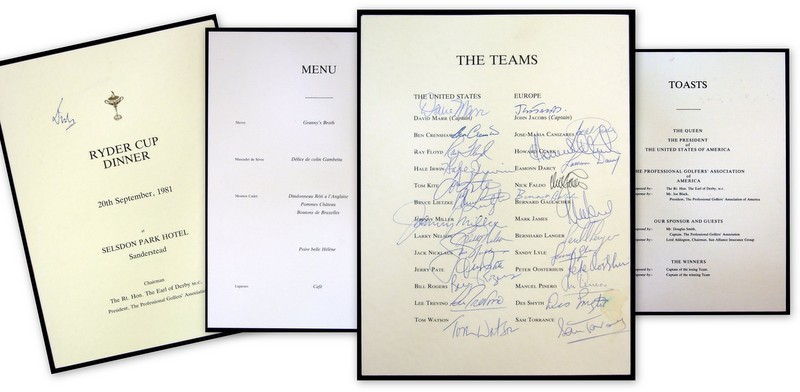 RYDER CUP
DINNER
20th September, 1981
at
SELSDON PARK HOTEL
Sanderstead
Chairman
The Rt. Hon. The Earl of Derby M.C.
President, The Professional Golfers' Association
MENU
Granny's Broth
Délice de colin Gambetta
Dindonneau Rôti a l'Anglaise
Pommes Château
Boutons de Bruxelles
Poire belle Hélène
Café
THE TEAMS
THE UNITED STATES
DAVID MARR (Captain)
BEN CRENSHAW
RAY FLOYD
HALE IRWIN
TOM KITE
BRUCE LIETZKE
JOHNNY MILLER
LARRY NELSON
JACK NICKLAUS
JERRY PATE
BILL ROGERS
LEE TREVINO
TOM WATSON
EUROPE
JOHN JACOBS (Captain)
JOSE-MARIA CANIZARES
HOWARD CLARK
EAMONN DARCY
NICK FALDO
BERNARD GALLACHER
MARK JAMES
BERNHARD LANGER
SANDY LYLE
PETER OOSTERHUIS
MANUEL PINERO
DES SMYTH
SAM TORRANCE
Tom Watson
TOASTS
THE QUEEN
THE PRESIDENT
of
THE UNITED STATES OF AMERICA
THE PROFESSIONAL GOLFERS' ASSOCIATION
of
AMERICA
The Rt. Hon. The Earl of Derby M.C.
Mr. Joe Black,
President, The Professional Golfers' Association of America
OUR SPONSOR AND GUESTS
Mr. Douglas Smith,
Captain, The Professional Golfers' Association
Lord Aldington, Chairman, Sun Alliance Insurance Group
THE WINNERS
Captain of the losing Team
Captain of the winning Team